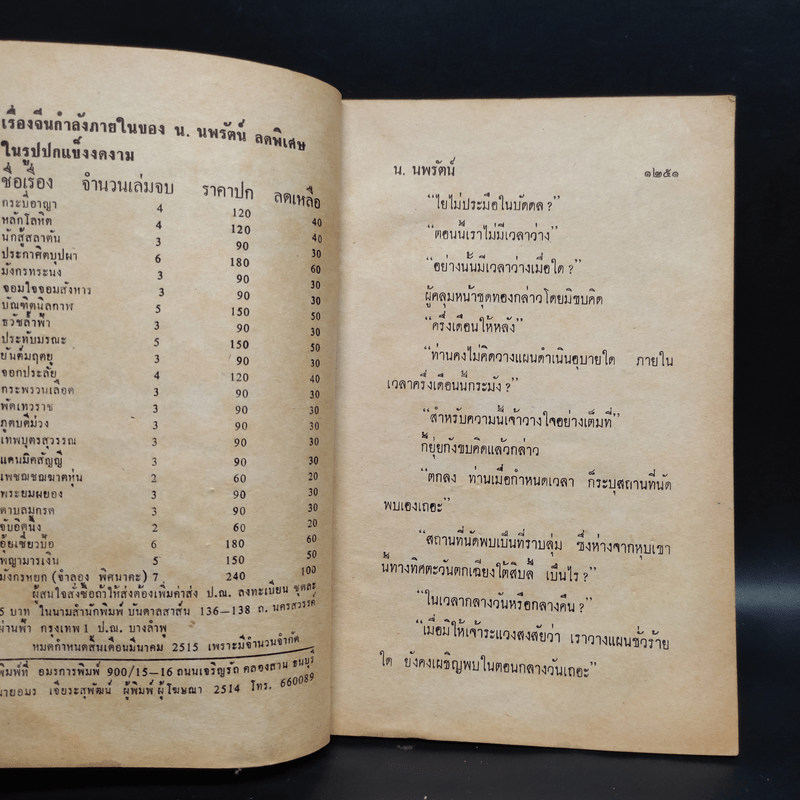 เรื่องจีนกำลังภายในของ น. นพรัตน์ ลดพิเศษ
ในรูปปกแข็งงดงาม
ชื่อเรื่อง จำนวนเล่มจบ ราคาปก ลดเหลือ
กระบี่อาญา 4 120 40
หลักโลหิต 4 120 40
นักสู้สลาตัน 3 90 30
ประกาศิตบุปผา 6 180 60
มังกรทระนง 3 90 30
จอมใจจอมสังหาร 3 90 30
บัณฑิตนิลกาฬ 5 150 50
ธวัชล้ำฟ้า 3 90 30
ประทับมรณะ 5 150 50
ยันต์มฤตยู 3 90 30
จอกประลัย 4 120 40
กระพรวนเลือด 3 90 30
พัดเทวราช 3 90 30
ภูตบดีม่วง 3 90 30
เทพบุตรสุวรรณ 3 90 30
แดนมิคสัญญี 3 90 30
เพชฌฆาตหุ่น 2 60 20
พระยมผยอง 3 90 30
ดาบลมกรด 3 90 30
จับอิดนึ้ง 2 60 20
อุ้ยเซี่ยวป้อ 6 180 60
พญามารเงิน 5 150 50
มังกรหยก (จำลอง พิศนาคะ) 7 240 100
ผู้สนใจสั่งซื้อถ้าให้ส่งต้องเพิ่มค่าส่ง ป.ณ. ลงทะเบียน ชุดละ
5 บาท ในนามสำนักพิมพ์ บันดาลสาส์น 136–138 ถ. นครสวรรค์
ผ่านฟ้า กรุงเทพ 1 ป.ณ. บางลำพู
หมดกำหนดสิ้นเดือนมีนาคม 2515 เพราะมีจำนวนจำกัด
พิมพ์ที่ อมรการพิมพ์ 900/15–16 ถนนเจริญรัถ คลองสาน ธนบุรี
นายอมร เจียระสุพัฒน์ ผู้พิมพ์ผู้โฆษณา 2514 โทร. 660089
น. นพรัตน์ ๑๒๕๑
“ไยไม่ประมือในบัดดล?”
“ตอนนี้เราไม่มีเวลาว่าง”
“อย่างนั้นมีเวลาว่างเมื่อใด?”
ผู้คลุมหน้าชุดทองกล่าวโดยมิขบคิด
“ครึ่งเดือนให้หลัง”
“ท่านคงไม่คิดวางแผนดำเนินอุบายใด ภายใน
เวลาครึ่งเดือนนี้กระมัง?”
“สำหรับความนี้เจ้าวางใจอย่างเต็มที่”
ก็ยุ่ยกังขบคิดแล้วกล่าว
“ตกลง ท่านเมื่อกำหนดเวลา ก็ระบุสถานที่นัด
พบเองเถอะ”
“สถานที่นัดพบเป็นที่ราบลุ่ม ซึ่งห่างจากหุบเขา
นี้ทางทิศตะวันตกเฉียงใต้สิบลี้ เป็นไร?”
“ในเวลากลางวันหรือกลางคืน?”
“เมื่อมิให้เจ้าระแวงสงสัยว่า เราวางแผนชั่วร้าย
ใด ยังคงเผชิญพบในตอนกลางวันเถอะ”